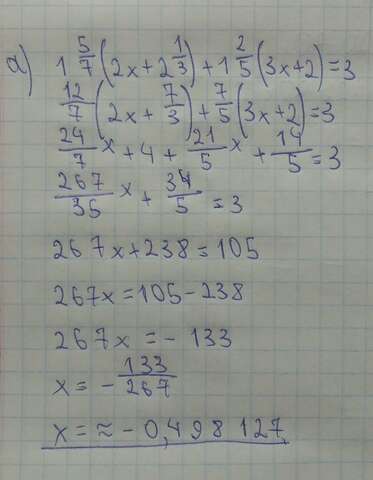 а) 1 5/7 (2x + 2 1/3) + 1 2/5 (3x+2) = 3
12/7 (2x + 7/3) + 7/5 (3x+2) = 3
24/7 x + 4 + 21/5 x + 14/5 = 3
267/35 x + 34/5 = 3
267x + 238 = 105
267x = 105 - 238
267x = - 133
x = - 133/267
x = ≈ - 0,498 127